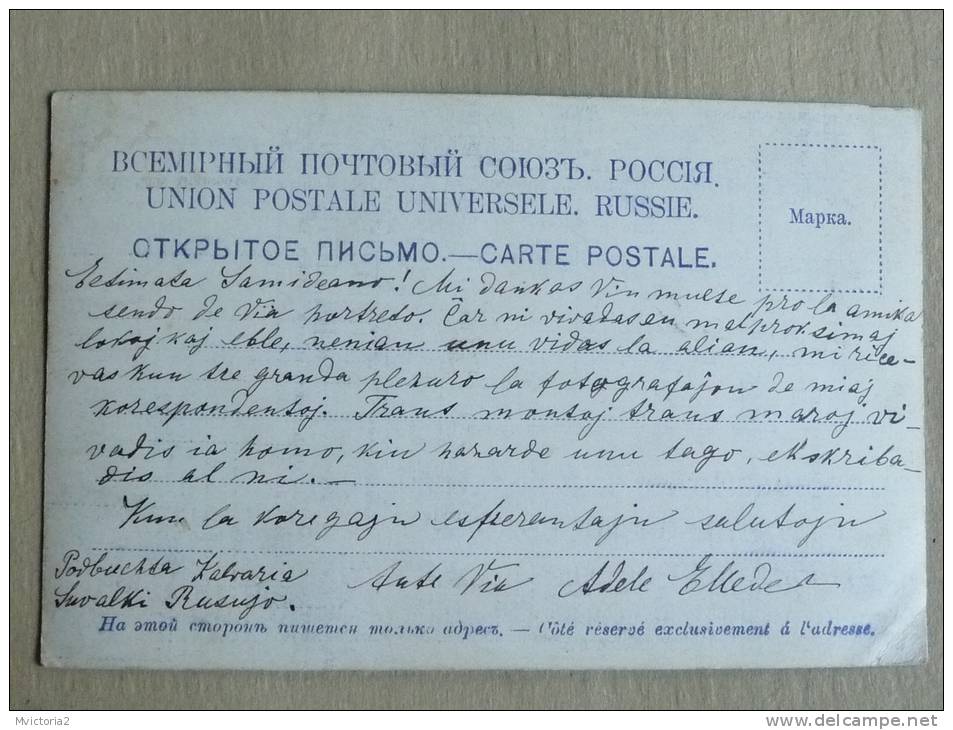 ВСЕМІРНЫЙ ПОЧТОВЫЙ СОЮЗЪ. РОССІЯ.
UNION POSTALE UNIVERSELE. RUSSIE.
Марка.
ОТКРЫТОЕ ПИСЬМО.—CARTE POSTALE.
Estimata Samideano! Mi dankas Vin multe pro la amika
sendo de Via portreto. Ĉar ni vivadas en malproksimaj
lokoj kaj eble, nenian unu vidas la alian, mi rice-
vas kun tre granda plezuro la fotografaĵon de miaj
korespondentoj. Trans montoj trans maroj vi-
vadis ia homo, kiu hazarde unu tago, ekskriba-
dis al ni.—
Kun la koregajn esperantajn salutojn
Podbuchta Kalvaria
Suvalki Rusujo.
Tute Via Adele
На этой сторонѣ пишется только адресъ. — Côté réservé exclusivement á l'adresse.
Mvictoria2
www.delcampe.net